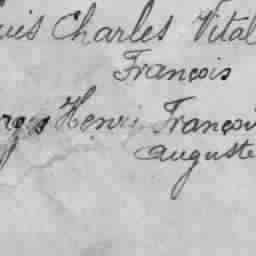 uis Charles Vital
François
rges Henri François
Auguste